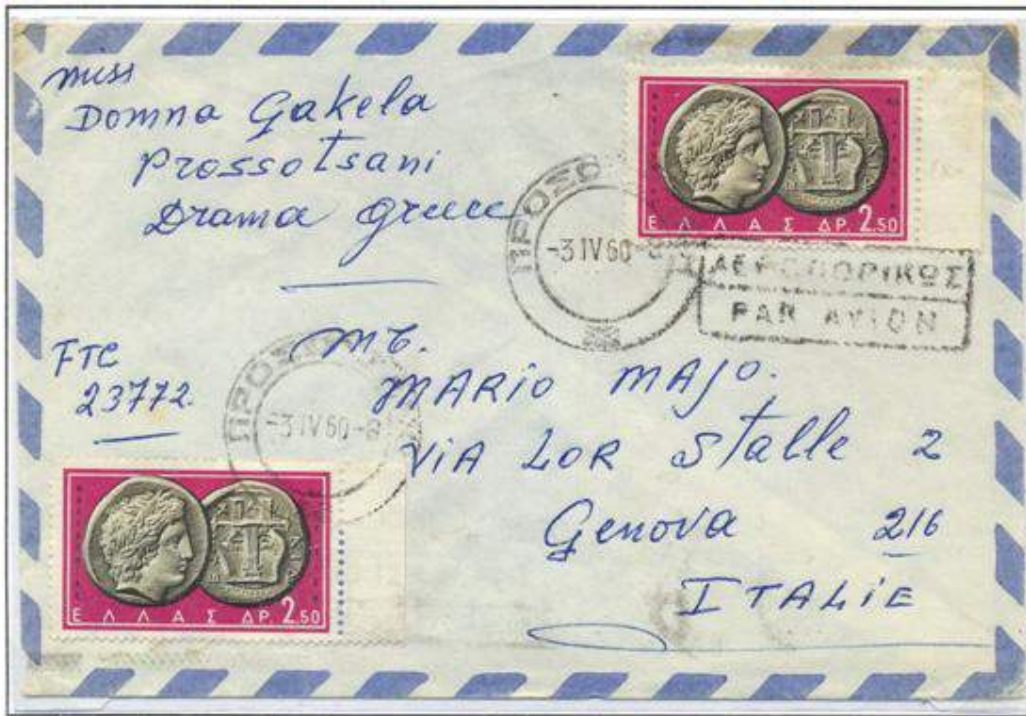 miss
Domna Gakela
Prossotsani
Drama Greece
ΕΛΛΑΣ ΔΡ. 2.50
-3 IV 60-8
ΑΕΡΟΠΟΡΙΚΩΣ
PAR AVION
FTC
23772.
MR.
MARIO MAJO.
VIA LOR Stalle 2
Genova 216
ITALIE
-3 IV 60-8
ΕΛΛΑΣ ΔΡ. 2.50